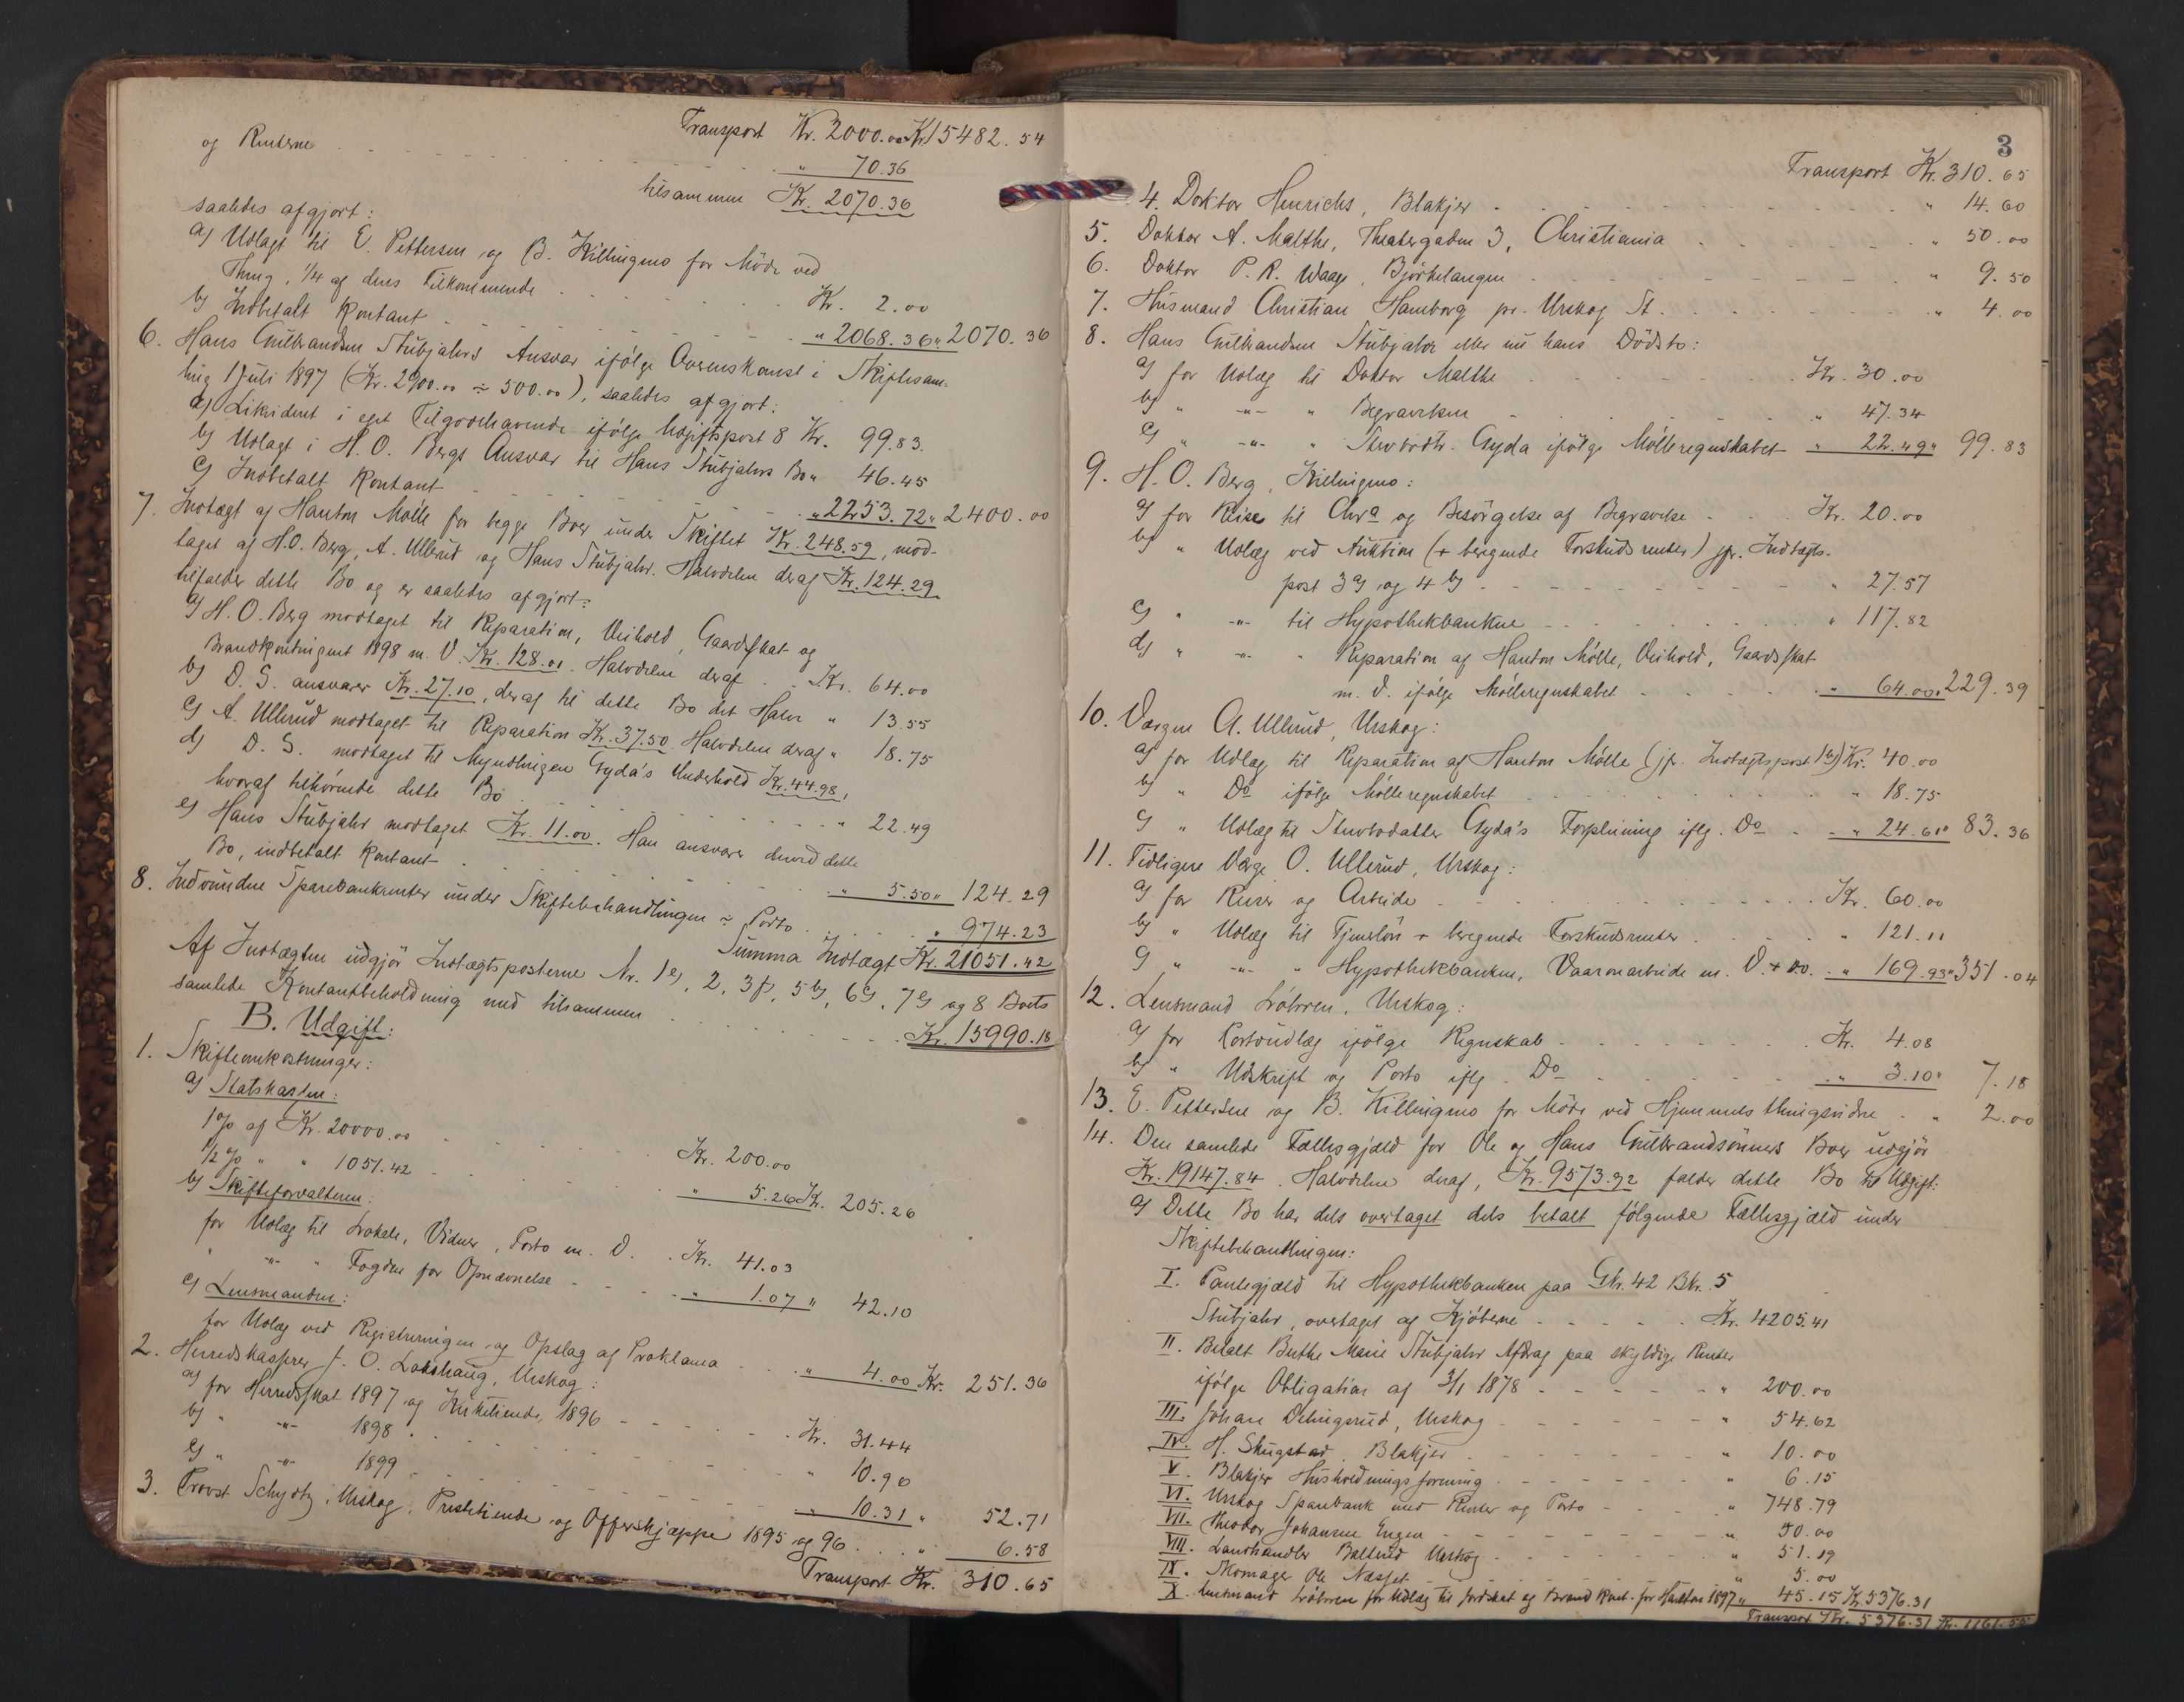 Transport Kr. 2000.00 Kr. 15482.54
og Renterne " 70.36
tilsammen Kr. 2070.36
saaledes afgjort:
a) Udlagt til E. Pettersen og B. Killingmo for Möde ved
Thing, 1/4 af deres Tilkommende Kr. 2.00
b) Indbetalt kontant " 2068.36 " 2070.36
6. Hans Gulbrandsen Stubjahrs Ansvar ifölge Overenskomst i Skiftesam-
ling 1 Juli 1897 (Kr. 2900.00 ÷ 500.00), saaledes afgjort:
a) Likvideret i eget Tilgodehavende ifölge Udgiftspost 8 Kr. 99.83
b) Udlagt i H. O. Bergs Ansvar til Hans Stubjahrs Bo " 46.45
c) Indbetalt kontant " 2253.72 " 2400.00
7. Indtægt af Hauton Mölle for begge Boer under Skiftet Kr. 248.59, mod-
taget af H.O. Berg, A. Ullerud og Hans Stubjahr. Halvdelen deraf Kr. 124.29
tilfalder dette Bo og er saaledes afgjort:
a) H. O. Berg modtaget til Reparation, Veihold, Gaardsskat og
Brandkontingent 1898 m. V. Kr. 128.01. Halvdelen deraf Kr. 64.00
b) D. S. ansvarer Kr. 27.10, deraf til dette Bo det Halve " 13.55
c) A. Ullerud modtaget til Reparation Kr. 37.50. Halvdelen deraf " 18.75
d) D. S. modtaget til Myndlingen Gyda's Underhold Kr. 44.98,
hvoraf tilhörende dette Bo " 22.49
e) Hans Stubjahr modtaget Kr. 11.00. Han ansvarer derved dette
Bo, indbetalt kontant " 5.50 " 124.29
8. Indvundne Sparebankrenter under Skiftebehandlingen ÷ Porto " 974.23
Summa Indtægt Kr. 21051.42
Af Indtægten udgjör Indtægtsposterne Nr. 1 e), 2, 3 f), 5 b), 6 c), 7 e) og 8 Boets
samlede Kontantbeholdning med tilsammen Kr. 15990.18
B. Udgift:
1. Skifteomkostninger:
a) Statskassen:
1 % af Kr. 20000.00 Kr. 200.00
1/2 % " " 1051.42 " 5.26 Kr. 205.26
b) Skifteforvalteren:
for Udlæg til Lokale, Vidner, Porto m. V. Kr. 41.03
" -"- " Fogden for Opnævnelse " 1.07 " 42.10
c) Lensmanden:
for Udlæg ved Registreringen og Opslag af Proklama " 4.00 Kr. 251.36
2. Herredskasserer J. O. Lokshaug, Urskog:
a) for Herredsskat 1897 og Kirketiende, 1896 Kr. 31.44
b) " -"- 1898 " 10.96
c) " -"- 1899 " 10.31 " 52.71
3. Provst Schydtz, Urskog, Prestetiende og Offerskjæppe 1895 og 96 " 6.58
Transport Kr. 310.65
3
Transport Kr. 310.65
4. Doktor Henrichs, Blakjer " 14.60
5. Doktor A. Malthe, Theatergaden 3, Christiania " 50.00
6. Doktor P. R. Waage, Björkelangen " 9.50
7. Husmand Christian Hamborg pr. Urskog St. " 4.00
8. Hans Gulbrandsen Stubjahr eller nu hans Dödsbo:
a) for Udlæg til Doktor Malthe Kr. 30.00
b) " -"- " Begravelsen " 47.34
c) " -"- " Stervbodtr. Gyda ifölge Mölleregnskabet " 22.49 " 99.83
9. H. O. Berg, Killingmo:
a) for Reise til Chra og Besörgelse af Begravelse Kr. 20.00
b) " Udlæg ved Auktion (+ beregnede Forskudsrenter) jfr. Indtægts-
post 3 a) og 4 b) " 27.57
c) " -"- til Hypothekbanken " 117.82
d) " -"- " Reparation af Hauton Mölle, Veihold, Gaardsskat
m. V. ifölge Mölleregnskabet " 64.00 " 229.39
10. Værgen A. Ullerud, Urskog:
a) for Udlæg til Reparation af Hauton Mölle (jfr. Indtægtspost 1 b)) Kr. 40.00
b) " Do ifölge Mölleregnskabet " 18.75
c) " Udlæg til Stervbodatter Gyda's Forpleining iflg. Do " 24.61 " 83.36
11. Tidligere Værge O. Ullerud, Urskog:
a) for Reiser og Arbeide Kr. 60.00
b) " Udlæg til Tjenerlön + beregnede Forskudsrenter " 121.11
c) " -"- " Hypothekbanken, Vaaronarbeide m. V. + do. " 169.93 " 351.04
12. Lensmand Lövren, Urskog:
a) for Portoudlæg ifölge Regnskab Kr. 4.08
b) " Udskrift og Porto iflg. Do " 3.10 " 7.18
13. E. Pettersen og B. Killingmo for Möde ved Hjemmels thingsvidne " 2.00
14. Den samlede Fællesgjæld for Ole og Hans Gulbrandsönners Boer udgjör
Kr. 19147.84. Halvdelen deraf, Kr. 9573.92 falder dette Bo til Udgift:
a) Dette Bo har dels overtaget dels betalt fölgende Fællesgjæld under
Skiftebehandlingen:
I. Pantegjæld til Hypothekbanken paa Gr. 42 Br. 5
Stubjahr, overtaget af Kjöberne Kr. 4205.41
II. Betalt Berthe Marie Stubjahr Afdrag paa skyldige Renter
ifölge Obligation af 3/1 1878 " 200.00
III. Johan Delingsrud, Urskog " 54.62
IV. H. Skugstad, Blakjer " 10.00
V. Blakjer Husholdningsforening " 6.15
VI. Urskog Sparebank med Renter og Porto " 748.79
VII. Theodor Johansen Engen " 50.00
VIII. Landhandler Ballerud Urskog " 51.19
IX. Skomager Ole Næsset " 5.00
X. Lensmand Lövren for Udlæg til Jordskat og Brand Kont. for Hauton 1897 " 45.15 Kr. 5376.31
Transport Kr. 5376.31 Kr. 1161.55